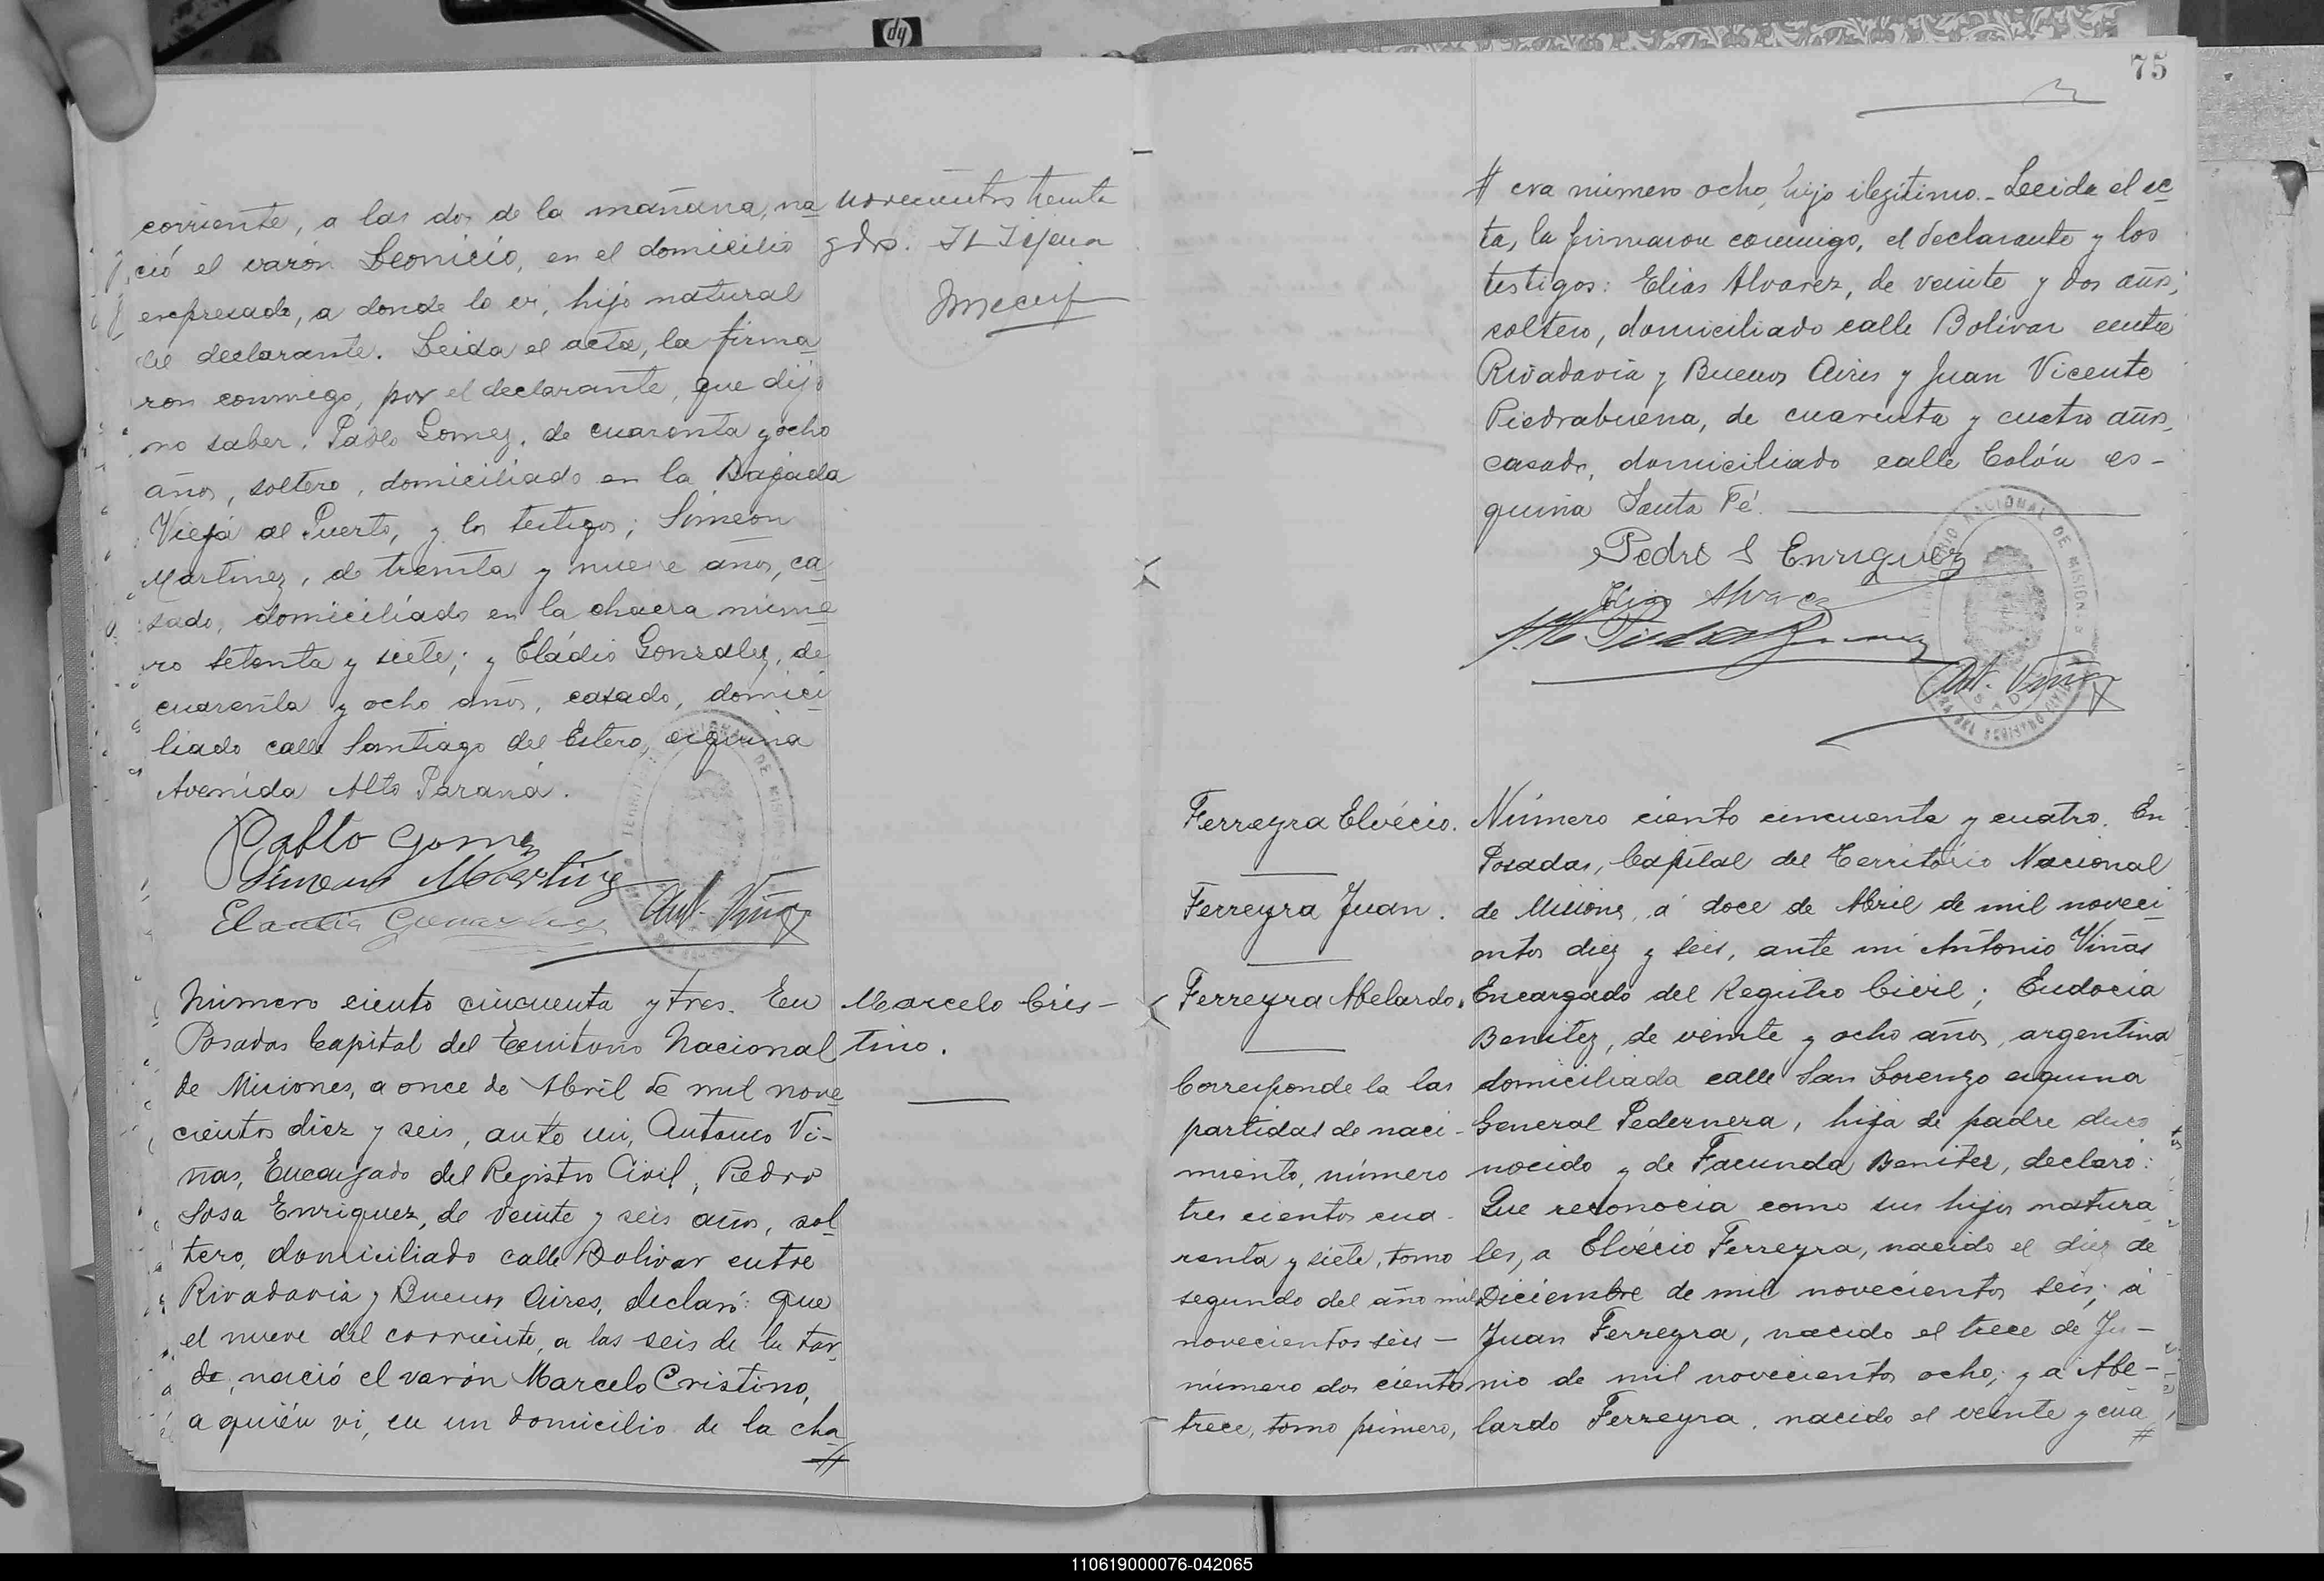 corriente, a las dos de la mañana, na
ció el varón Leonicio, en el domicilio
expresado, a donde lo vi, hijo natural
del declarante. Leida el acta, la firma
ron conmigo, por el declarante, que dijo
no saber, Pablo Gomez, de cuarenta y ocho
años, soltero, domiciliado en la Bajada
Vieja al Puerto, y los testigos; Simeon
Martinez, de treinta y nueve años, ca
sado, domiciliado en la chacra núme
ro setenta y siete; y Eládio Gonzalez, de
cuarenta y ocho años, casado, domici
liado calle Santiago del Estero, esquina
Avenida Alto Paraná.
novecientos treinta
Pablo Gomez
Simeon Martinez
Eladio Gonzalez
Ant. Viñas
Número ciento cincuenta y tres. En
Posadas Capital del Territorio Nacional
de Misiones, a once de Abril de mil nove
cientos diez y seis, ante mi, Antonio Vi-
ñas, Encargado del Registro Civil, Pedro
Sosa Enriquez, de veinte y seis años, sol
tero, domiciliado calle Bolivar entre
Rivadavia y Buenos Aires, declaró: que
el nueve del corriente, a las seis de la tar
de, nació el varón Marcelo Cristino,
a quién vi, en un domicilio de la cha
#
Marcelo Cris-
tino.
75
# cra número ocho, hijo ilegítimo.- Leida el ac
ta, la firmaron conmigo, el declarante y los
testigos: Elias Alvarez, de veinte y dos años,
soltero, domiciliado calle Bolivar entre
Rivadavia y Buenos Aires y Juan Vicente
Piedrabuena, de cuarenta y cuatro años,
casado, domiciliado calle Colón es-
quina Santa Fé.
Pedro S Enriquez
Elias Alvarez
Ant. Viñas
Ferreyra Elvécio.
Ferreyra Juan.
Ferreyra Abelardo.
Corresponde la las
partidas de naci-
miento, número
tres cientos cua-
renta y siete, tomo
segundo del año mil
novecientos seis -
número dos cientos
trece, tomo primero,
Número ciento cincuenta y cuatro. En
Posadas, Capital del Territorio Nacional
de Misiones, á doce de Abril de mil noveci
entos diez y seis, ante mi Antonio Viñas
Encargado del Registro Civil; Eudocia
Benitez, de veinte y ocho años, argentina
domiciliada calle San Lorenzo esquina
General Pedernera, hija de padre desco
nocido y de Facunda Benitez, declaró:
Que reconocia como sus hijos natura
les, a Elvécio Ferreyra, nacido el diez de
Diciembre de mil novecientos seis; á
Juan Ferreyra, nacido el trece de Ju-
nio de mil novecientos ocho; y a Abe-
lardo Ferreyra, nacido el veinte y cua
#
110619000076-042065